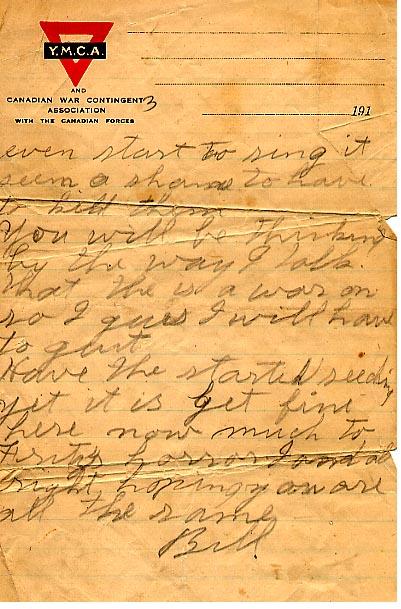 Y.M.C.A.
AND
CANADIAN WAR CONTINGENT
ASSOCIATION
WITH THE CANADIAN FORCES
3
191
even start to sing it
seem a shame to have
to kill them
You will be thinking
by the way I talk
that the is a war on
so I gues I will have
to quit
Have the started seeding
yet it is get fine
here now much to
horror
right hoping you are
all the same
Bill